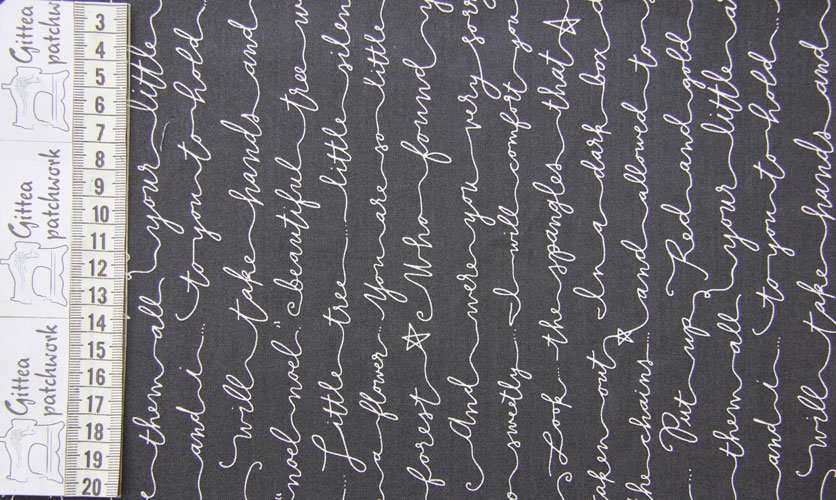 Gittea
patchwork
Gittea
patchwork
Gittea
patchwork
3
4
5
6
7
8
9
10
11
12
13
14
15
16
17
18
19
20
them all your little
and i... to you to hold...
will take hands and
"noel noel" beautiful tree
Little tree... little silen
a flower... You are so little
forest Who found
And were you very sorr
sweetly... I will comfort you
Look... the spangles that
In a dark box
aken out and allowed to
he chains...
Put up Red and gold
them all your little
and i... to you to hold...
will take hands and